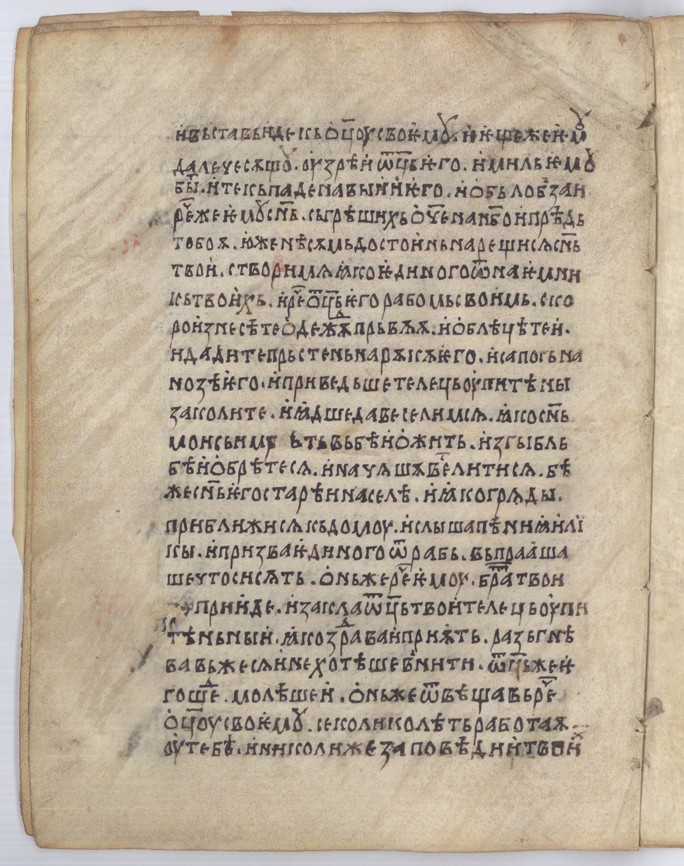 и҆въставъи҆де къо҆ц҃оусвоѥмꙋ. и҆ѥ҆щежеѥ҆мꙋ
далечесѧщꙋ. оу҆зрѣи҆ѿц҃ьѥ҆го. и҆милъѥ҆мꙋ
бы. и҆текъпаденавыи҆ѥ҆го. и҆облобꙁаи
реⷱ҇жеѥ҆мꙋсн҃ъ. съгрѣшихъо҆ч҃енан҃боипрѣдъ
тобоѫ. ю҆женѣсѧмьдостои҆нънарещисѧсн҃ъ
твои҆. створимѧꙗ҆коѥ҆диногоѿнаѥ҆мни
кътвои҆хъ. и҆реⷱ҇ѿц҃ьѥ҆горабомъсвоимъ. ско
рои҆знесѣтео҆дежѫпръвѫѫ. и҆о҆блѣцѣтеи҆.
и҆дадитепръстеньнарѫкѫѥ҆го. и҆сапогына
нозѣѥ҆го. и҆приведъшетелецьоу҆питѣны
заколите. и҆ꙗ҆дшедавеселимсѧ. ꙗ҆косн҃ъ
мои съи мр ътъвъбѣи҆о҆житъ. и҆згыблъ
бѣи҆о҆брѣтесѧ. и҆начѧшѧвеⷭ҇литисѧ. бѣ
жесн҃ъѥ҆гостарѣи҆населѣ. и҆ꙗ҆когрѧды.
приближисѧкъдомоу. и҆слышапѣниꙗ҆и҆лі
кы. и҆призваѥ҆диногоѿрабъ. въпрааша
шечтосисѫть. о҆нъжереⷱ҇ѥ҆моу. братⷬ҇твои
прии҆де. и҆закла ѿц҃ьтвои҆телецьоу҆пи
тѣньныи҆. ꙗ҆коздраваи҆приѧтъ. разъгнѣ
вавъжесѧи҆нехотѣшевънити. ѿц҃ьжеѥ҆
гошеⷣ. молѣшеи҆. о҆нъжеѿвѣщавъреⷱ҇
о҆ц҃оусвоѥ҆мꙋ. се коликолѣтъработаѫ
оу҆тебѣ. и҆николижезаповѣдии҆твои҆